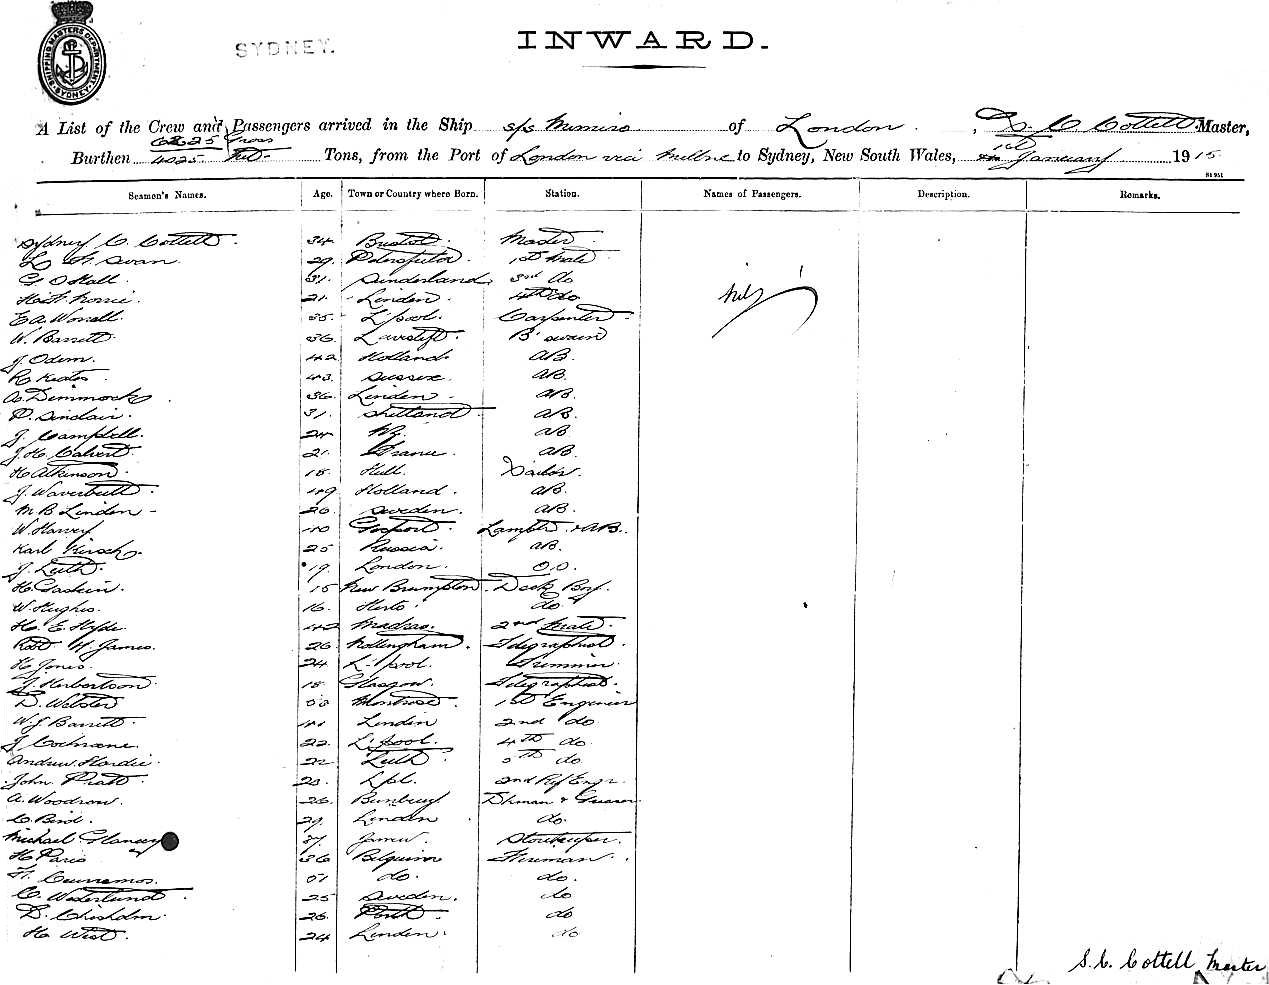 SHIPPING MASTERS DEPARTMENT SYDNEY
SYDNEY.
INWARD.
A List of the Crew and Passengers arrived in the Ship s/s Mimiro of London, S. C Cottell Master,
6225 Gross
Burthen 4025 Net Tons, from the Port of London via Melbne to Sydney, New South Wales, 1st January 1915
Seamen's Names. Age. Town or Country where Born. Station. Names of Passengers. Description. Remarks.
Sydney C. Cottell. 34 Bristol. Master
Swan. 29 1st Mate
G O Hall. 31. Sunderland 3rd do
21. London. 4th do
E A Worrall. 35 L'pool. Carpenter
W. Barrett 36 B'swain
J. Odem. 42 Holland AB.
R Keates 43. Sussex. AB.
A. Dimmock 36 London AB.
P. Sinclair. 31. Shetland AB.
J. Campbell. 24 AB
J. H. Calvert. 21. France. AB.
H Atkinson. 18. Hull. Sailor.
J. 49 Holland. AB.
M B Linden 26 Sweden. AB.
W. Harvey 40 Gosport. Lamptr. & AB.
Karl Hirsch. 25 Russia. AB.
J. Leith. 19. London. O.S.
H. Gaskin. 15 New Brumpton Deck Boy.
W. Hughes. 16. Herts do
H. E Hyde 42 Madras. 2nd Mate.
Robt H. James. 26 Nottingham. Telegraphist.
H Jones. 24 L'pool. Trimmer.
J. Herbertson 18. Glasgow. Telegraphist.
D. Webster Montrose 1st Engineer
W. J Barrett 41 London 2nd do
J Cochrane. 22. L'pool. 4th do.
Andrew Hardie. 22 Leith 5th do
John Pratt. 23. Lpl. 2nd Ref Engr.
A. Woodrow. 26 Bunbury Dkman & Greaser
C. Bird. 29. London do.
Michael Glancey 37. Storekeeper.
H Paris 36 Belguim Fireman.
51 do. do.
C. Wederlund 25 Sweden. do
D. Chisholm. 26 Perth do
H. West. 24 London. do
Nil
S. C. Cottell Master